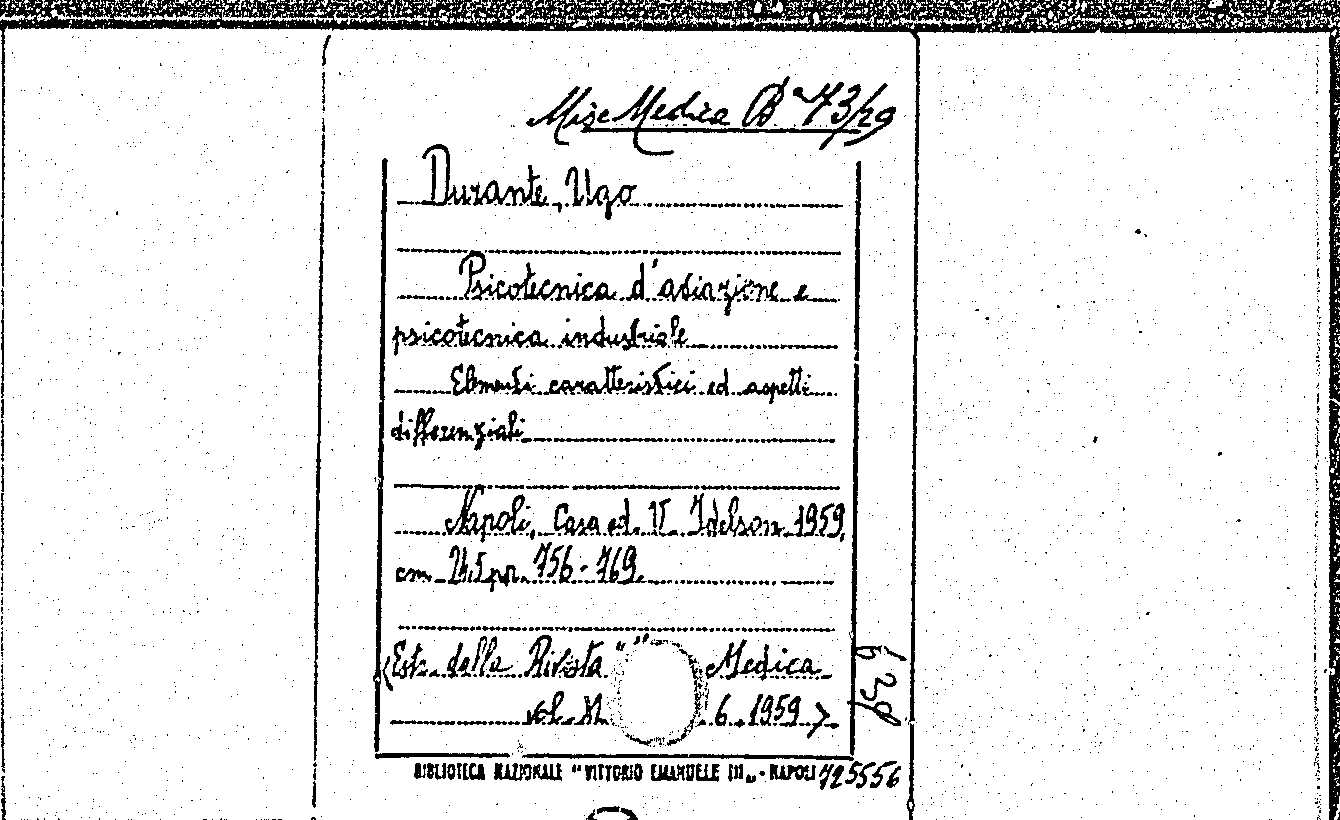 Misc Medica Bª 73/29
Durante, Ugo
Psicotecnica d'aviazione e
psicotecnica industriale
Elementi caratteristici ed aspetti
differenziali
Napoli, Casa ed. V. Idelson 1959,
cm. 24,5 pp. 756-769.
(Estr. della Rivista " Medica
vol. 6. 1959)
BIBLIOTECA NAZIONALE "VITTORIO EMANUELE III„ - NAPOLI 725556